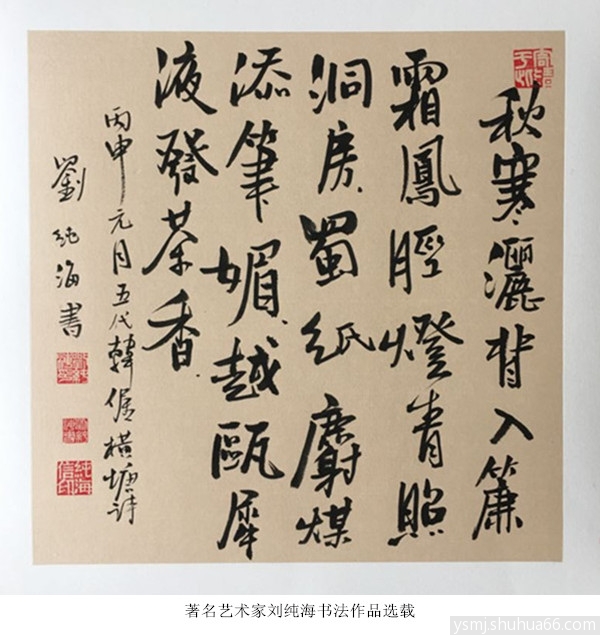 秋寒灑背入簾
霜鳳脛燈青照
洞房蜀紙麝煤
添筆媚越甌犀
液發茶香
丙申元月五代韓偓橫塘詩
劉純海書
純海信印
著名艺术家刘纯海书法作品选载
ysmj.shuhua66.com